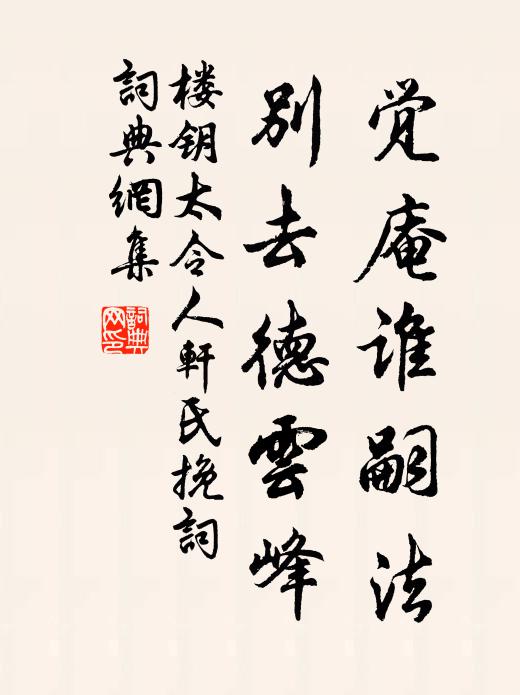 觉庵谁嗣法
别去德雲峰
楼钥太令人軒氏挽詞
詞典網集
詞典
网印